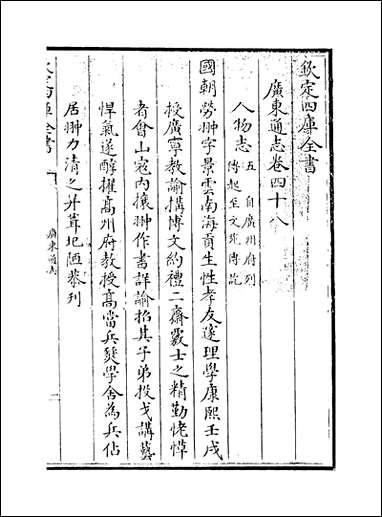 欽定四庫全書
廣東通志卷四十八
人物志 五 自廣州府列
傳起至文苑傳訖
國朝勞翀字景雲南海貢生性孝友邃理學康熙壬戌
授廣寧教諭搆博文約禮二齋覈士之精勤恍惇
者會山寇內攘翀作書詳諭招其子弟投戈講藝
悍氣遂醇擢高州府教授高當兵燹學舍為兵佔
居翀力清之并葺圮陋恭列
廣東通志
一